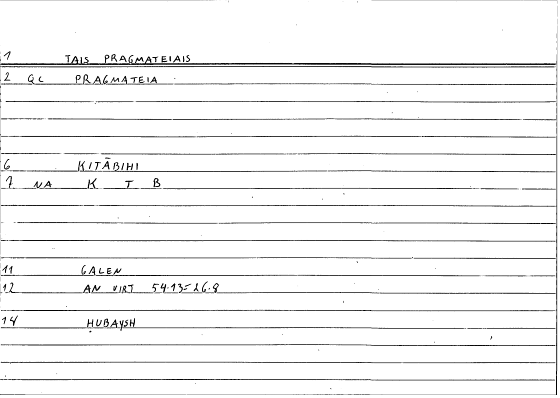 1 TAIS PRAGMATEIAIS
2 QC PRAGMATEIA
6 KITĀBIHI
7 NA K T B
11 GALEN
12 AN VIRT 54.13=26.8
14 HUBAYSH